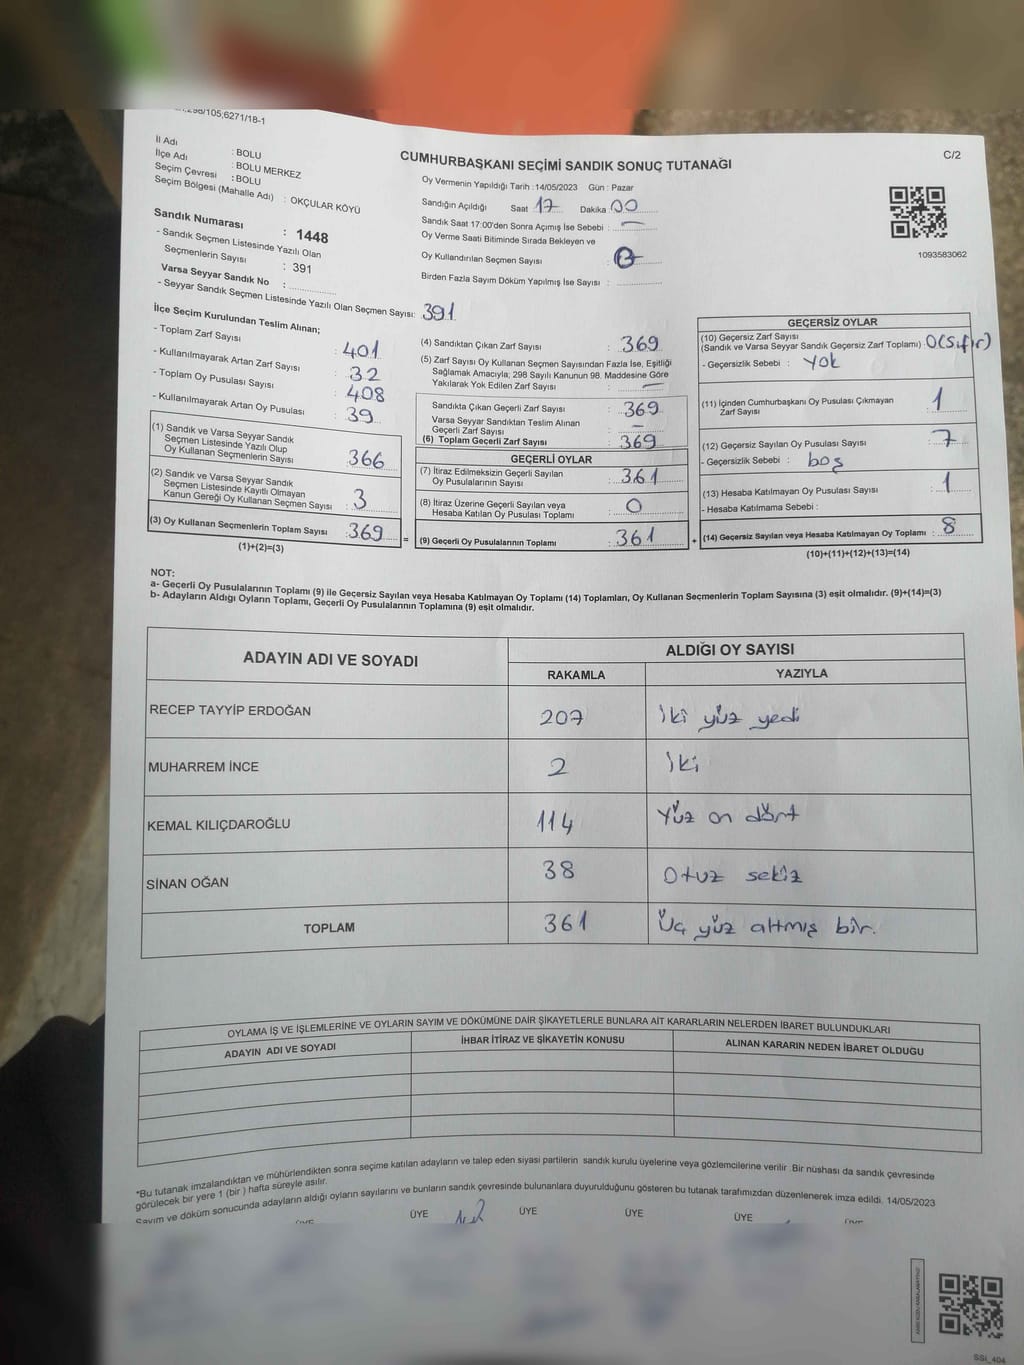 298/105;6271/18-1
C/2
CUMHURBAŞKANI SEÇİMİ SANDIK SONUÇ TUTANAĞI
İl Adı : BOLU
İlçe Adı : BOLU MERKEZ
Seçim Çevresi : BOLU
Seçim Bölgesi (Mahalle Adı) : OKÇULAR KÖYÜ
Sandık Numarası : 1448
- Sandık Seçmen Listesinde Yazılı Olan
Seçmenlerin Sayısı : 391
Varsa Seyyar Sandık No :
- Seyyar Sandık Seçmen Listesinde Yazılı Olan Seçmen Sayısı: 391
Oy Vermenin Yapıldığı Tarih : 14/05/2023 Gün : Pazar
Sandığın Açıldığı Saat 17 Dakika 00
Sandık Saat 17:00'den Sonra Açımış İse Sebebi : —
Oy Verme Saati Bitiminde Sırada Bekleyen ve
Oy Kullandırılan Seçmen Sayısı :
Birden Fazla Sayım Döküm Yapılmış İse Sayısı :
1093583062
İlçe Seçim Kurulundan Teslim Alınan;
- Toplam Zarf Sayısı : 401
- Kullanılmayarak Artan Zarf Sayısı : 32
- Toplam Oy Pusulası Sayısı : 408
- Kullanılmayarak Artan Oy Pusulası : 39
(1) Sandık ve Varsa Seyyar Sandık
Seçmen Listesinde Yazılı Olup
Oy Kullanan Seçmenlerin Sayısı : 366
(2) Sandık ve Varsa Seyyar Sandık
Seçmen Listesinde Kayıtlı Olmayan
Kanun Gereği Oy Kullanan Seçmen Sayısı : 3
(3) Oy Kullanan Seçmenlerin Toplam Sayısı : 369 =
(1)+(2)=(3)
(4) Sandıktan Çıkan Zarf Sayısı : 369
(5) Zarf Sayısı Oy Kullanan Seçmen Sayısından Fazla İse, Eşitliği
Sağlamak Amacıyla; 298 Sayılı Kanunun 98. Maddesine Göre
Yakılarak Yok Edilen Zarf Sayısı : —
Sandıkta Çıkan Geçerli Zarf Sayısı : 369
Varsa Seyyar Sandıktan Teslim Alınan
Geçerli Zarf Sayısı : —
(6) Toplam Geçerli Zarf Sayısı : 369
GEÇERLİ OYLAR
(7) İtiraz Edilmeksizin Geçerli Sayılan
Oy Pusulalarının Sayısı : 361
(8) İtiraz Üzerine Geçerli Sayılan veya
Hesaba Katılan Oy Pusulası Toplamı : 0
(9) Geçerli Oy Pusulalarının Toplamı : 361 +
GEÇERSİZ OYLAR
(10) Geçersiz Zarf Sayısı
(Sandık ve Varsa Seyyar Sandık Geçersiz Zarf Toplamı) 0(Sıfır)
- Geçersizlik Sebebi : yok
(11) İçinden Cumhurbaşkanı Oy Pusulası Çıkmayan
Zarf Sayısı : 1
(12) Geçersiz Sayılan Oy Pusulası Sayısı : 7
- Geçersizlik Sebebi : boş
(13) Hesaba Katılmayan Oy Pusulası Sayısı : 1
- Hesaba Katılmama Sebebi :
(14) Geçersiz Sayılan veya Hesaba Katılmayan Oy Toplamı : 8
(10)+(11)+(12)+(13)=(14)
NOT:
a- Geçerli Oy Pusulalarının Toplamı (9) ile Geçersiz Sayılan veya Hesaba Katılmayan Oy Toplamı (14) Toplamları, Oy Kullanan Seçmenlerin Toplam Sayısına (3) eşit olmalıdır. (9)+(14)=(3)
b- Adayların Aldığı Oyların Toplamı, Geçerli Oy Pusulalarının Toplamına (9) eşit olmalıdır.
ADAYIN ADI VE SOYADI
ALDIĞI OY SAYISI
RAKAMLA YAZIYLA
RECEP TAYYİP ERDOĞAN 207 İki yüz yedi
MUHARREM İNCE 2 İki
KEMAL KILIÇDAROĞLU 114 Yüz on dört
SİNAN OĞAN 38 Otuz sekiz
TOPLAM 361 Üç yüz altmış bir.
OYLAMA İŞ VE İŞLEMLERİNE VE OYLARIN SAYIM VE DÖKÜMÜNE DAİR ŞİKAYETLERLE BUNLARA AİT KARARLARIN NELERDEN İBARET BULUNDUKLARI
ADAYIN ADI VE SOYADI İHBAR İTİRAZ VE ŞİKAYETİN KONUSU ALINAN KARARIN NEDEN İBARET OLDUĞU
*Bu tutanak imzalandıktan ve mühürlendikten sonra seçime katılan adayların ve talep eden siyasi partilerin sandık kurulu üyelerine veya gözlemcilerine verilir Bir nüshası da sandık çevresinde
görülecek bir yere 1 (bir ) hafta süreyle asılır.
Sayım ve döküm sonucunda adayların aldığı oyların sayılarını ve bunların sandık çevresinde bulunanlara duyurulduğunu gösteren bu tutanak tarafımızdan düzenlenerek imza edildi. 14/05/2023
ÜYE ÜYE ÜYE ÜYE ÜYE ÜYE
SSİ_404